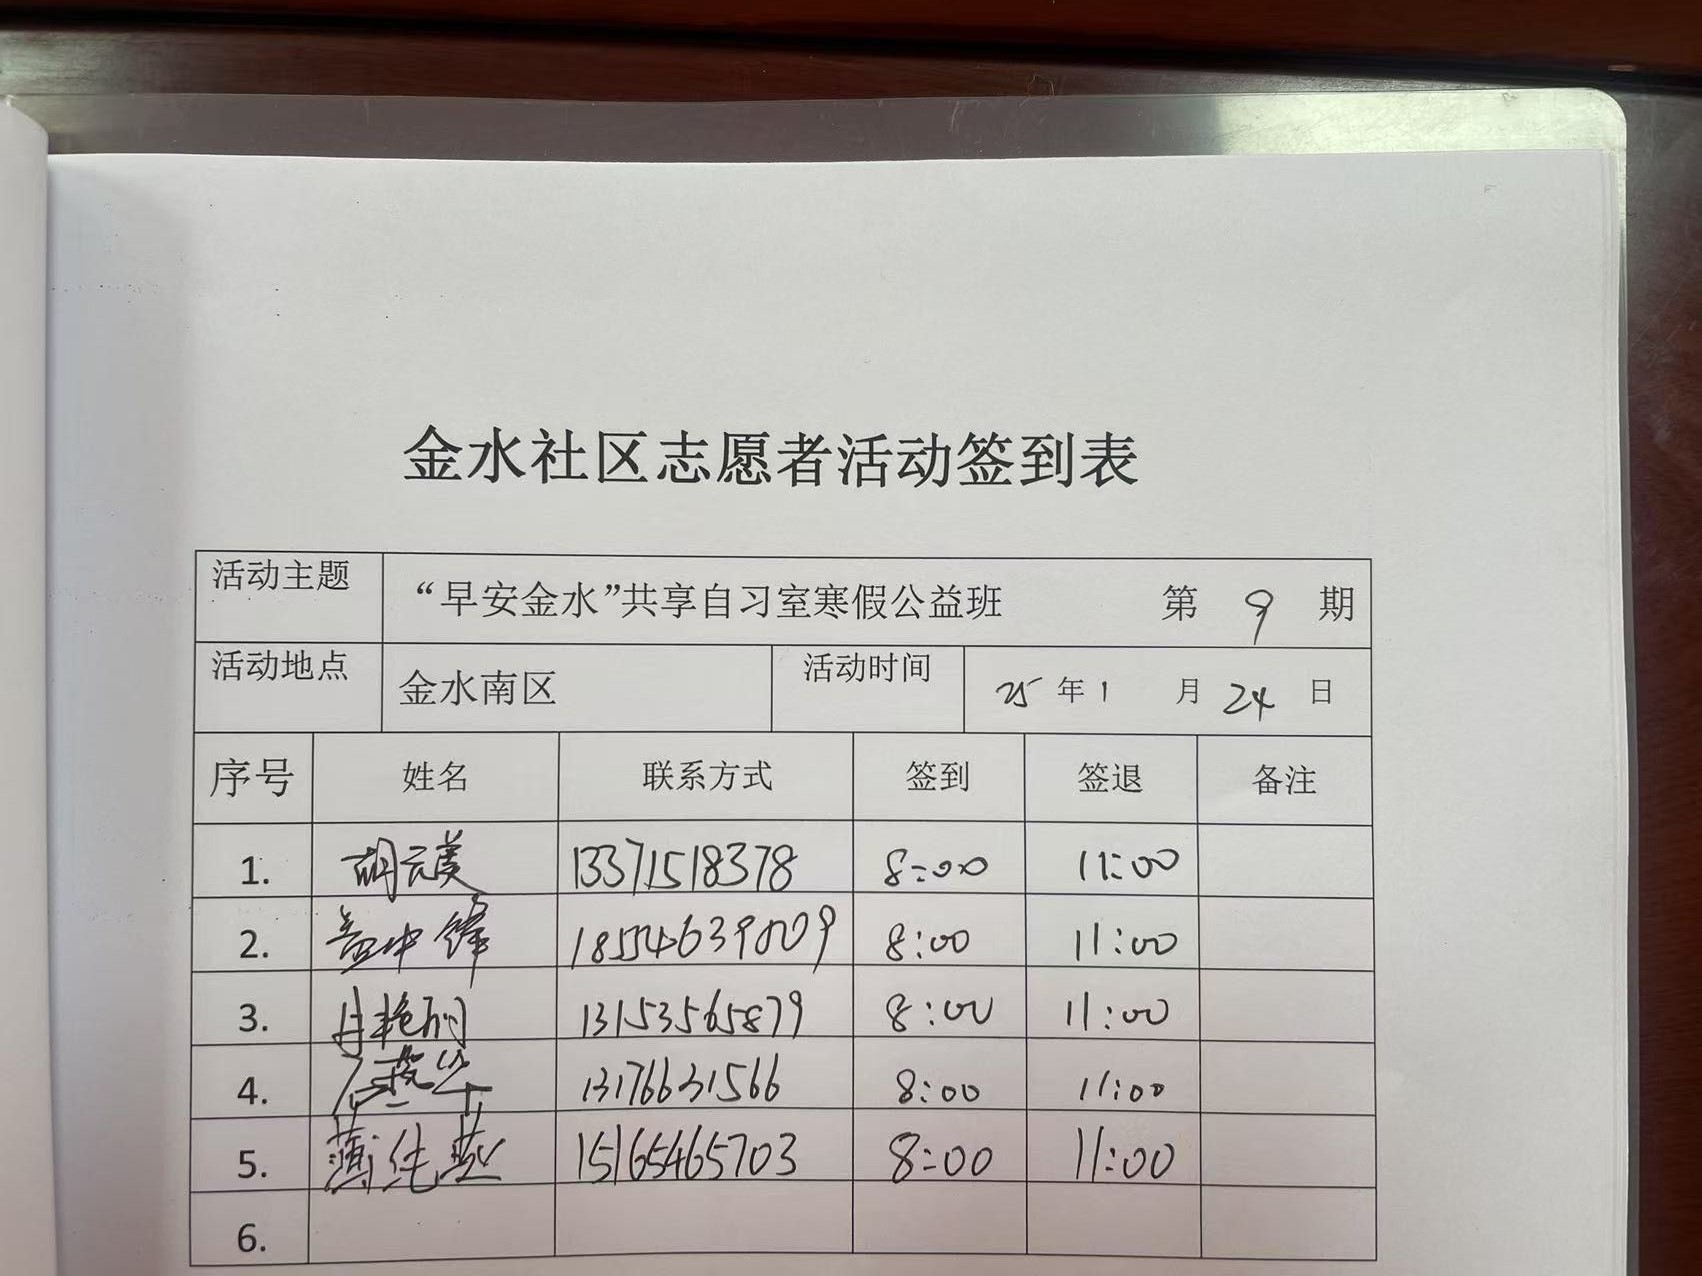 金水社区志愿者活动签到表
活动主题 “早安金水”共享自习室寒假公益班 第 9 期
活动地点 金水南区 活动时间 25 年 1 月 24 日
序号 姓名 联系方式 签到 签退 备注
1. 胡云美 13371518378 8:00 11:00
2. 盖中锋 18554639009 8:00 11:00
3. 13153565879 8:00 11:00
4. 13176631566 8:00 11:00
5. 薄纯燕 15165465703 8:00 11:00
6.